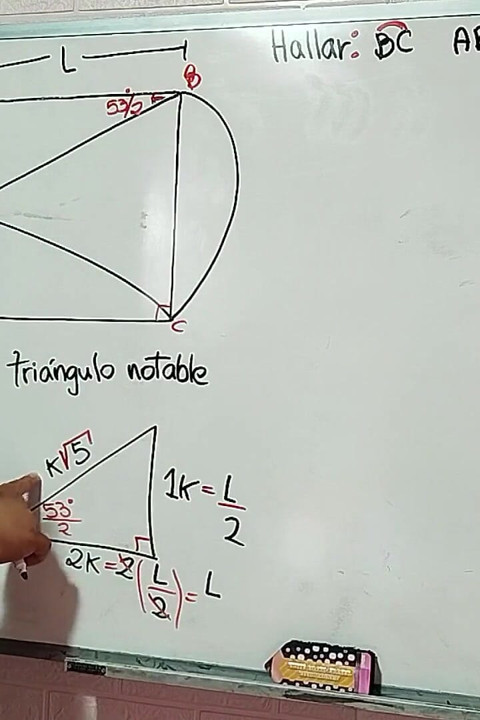 L
Hallar: BC
B
53°/2
C
triángulo notable
K√5
1K = L/2
53°/2
2K = 2(L/2) = L